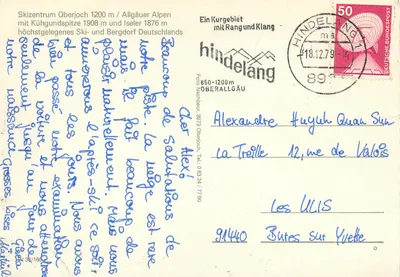 Skizentrum Oberjoch 1200 m / Allgäuer Alpen
mit Kühgundspitze 1908 m und Iseler 1876 m
höchstgelegenes Ski- und Bergdorf Deutschlands
Cher Alex!
Beaucoup de salutations de
notre piste. La neige est rare
mais il fait beaucoup de
plaisir naturellement. Mais nous
aimerons l'après-ski ce soir
et tous les jours. Nous avons
bien passé notre examination
de la voiture et nous attendons
seulement jusqu'au jour de
notre naissance. Grosses bises
Gisela
Ein Kurgebiet
mit Rang und Klang
hindelang
850-1200 m
OBERALLGÄU
HINDELANG 1
ma
18.12.79
897
50
DEUTSCHE BUNDESPOST
Alexandre Huynh Quan Sun
La Treille 12, rue de Valois
Les ULIS
91440 Bures sur Yvette